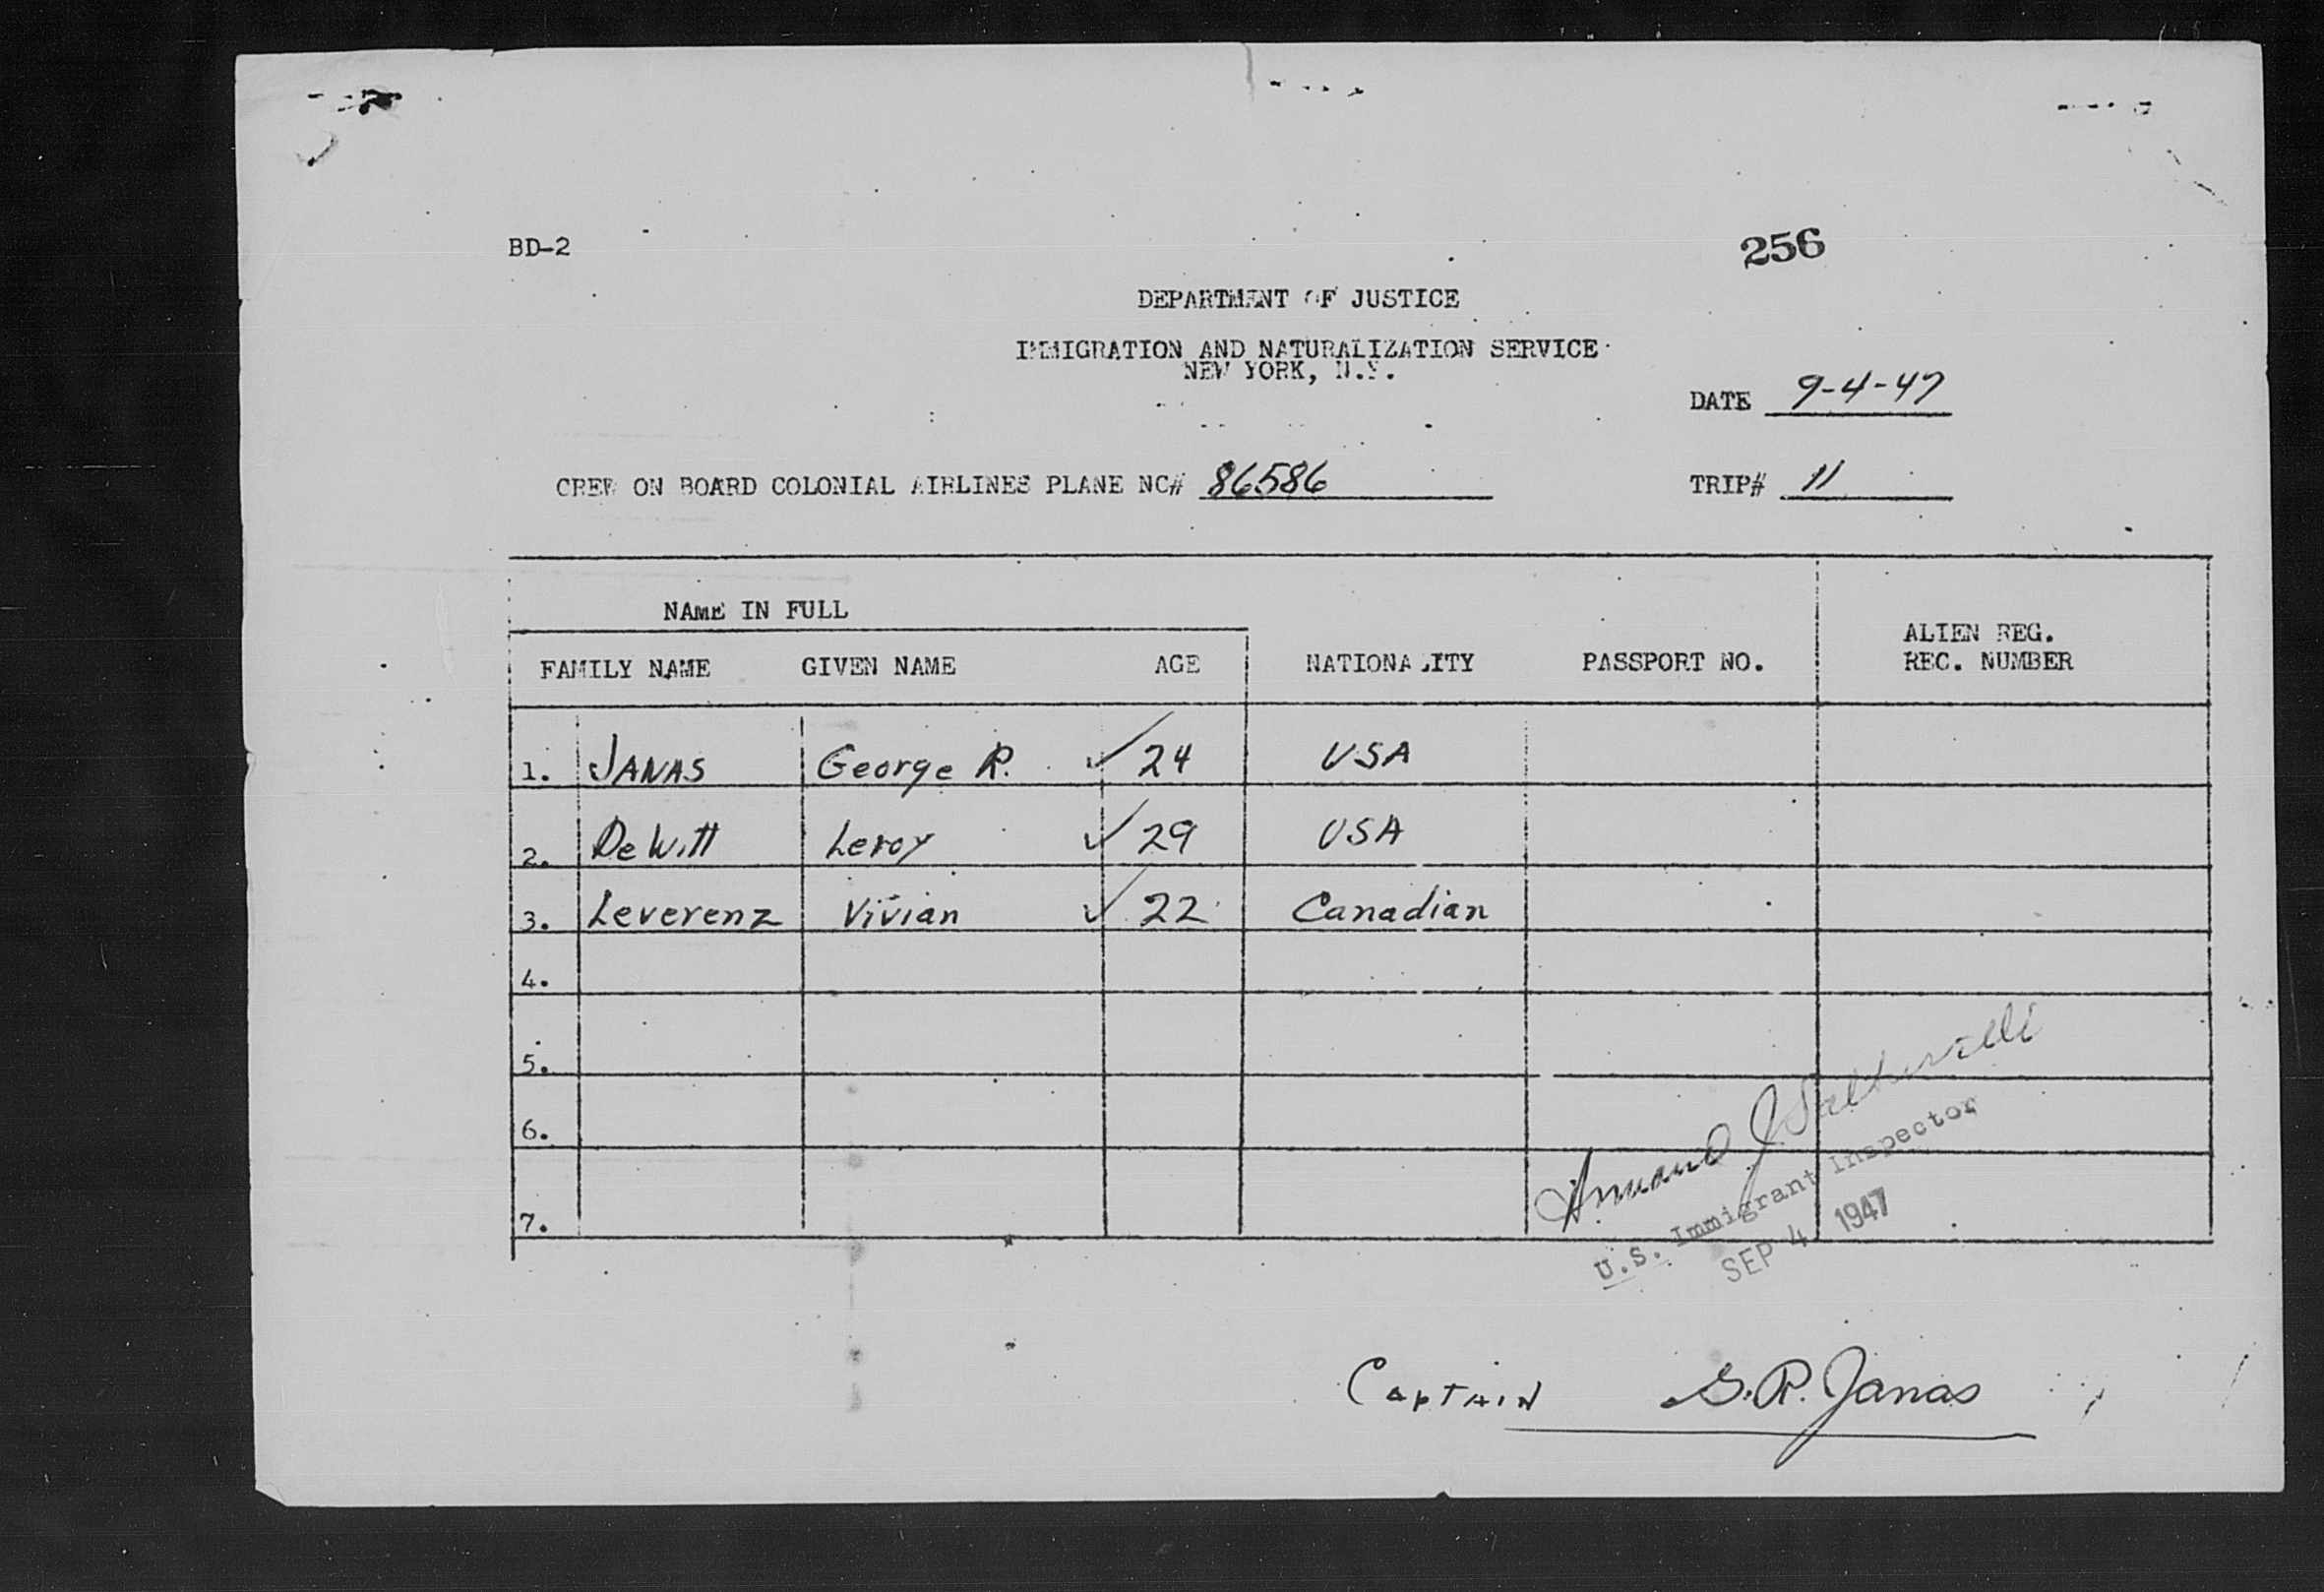 BD-2
256
DEPARTMENT OF JUSTICE
IMMIGRATION AND NATURALIZATION SERVICE
NEW YORK, N.Y.
DATE 9-4-47
CREW ON BOARD COLONIAL AIRLINES PLANE NC# 86586 TRIP# 11
NAME IN FULL
ALIEN REG.
FAMILY NAME GIVEN NAME AGE NATIONALITY PASSPORT NO. REC. NUMBER
1. JANAS George R. ✓ 24 USA
2. DeWitt Leroy ✓ 29 USA
3. Leverenz Vivian ✓ 22 Canadian
4.
5.
6.
7.
Armand J.
U.S. Immigrant Inspector
SEP 4 1947
Captain G.R. Janas